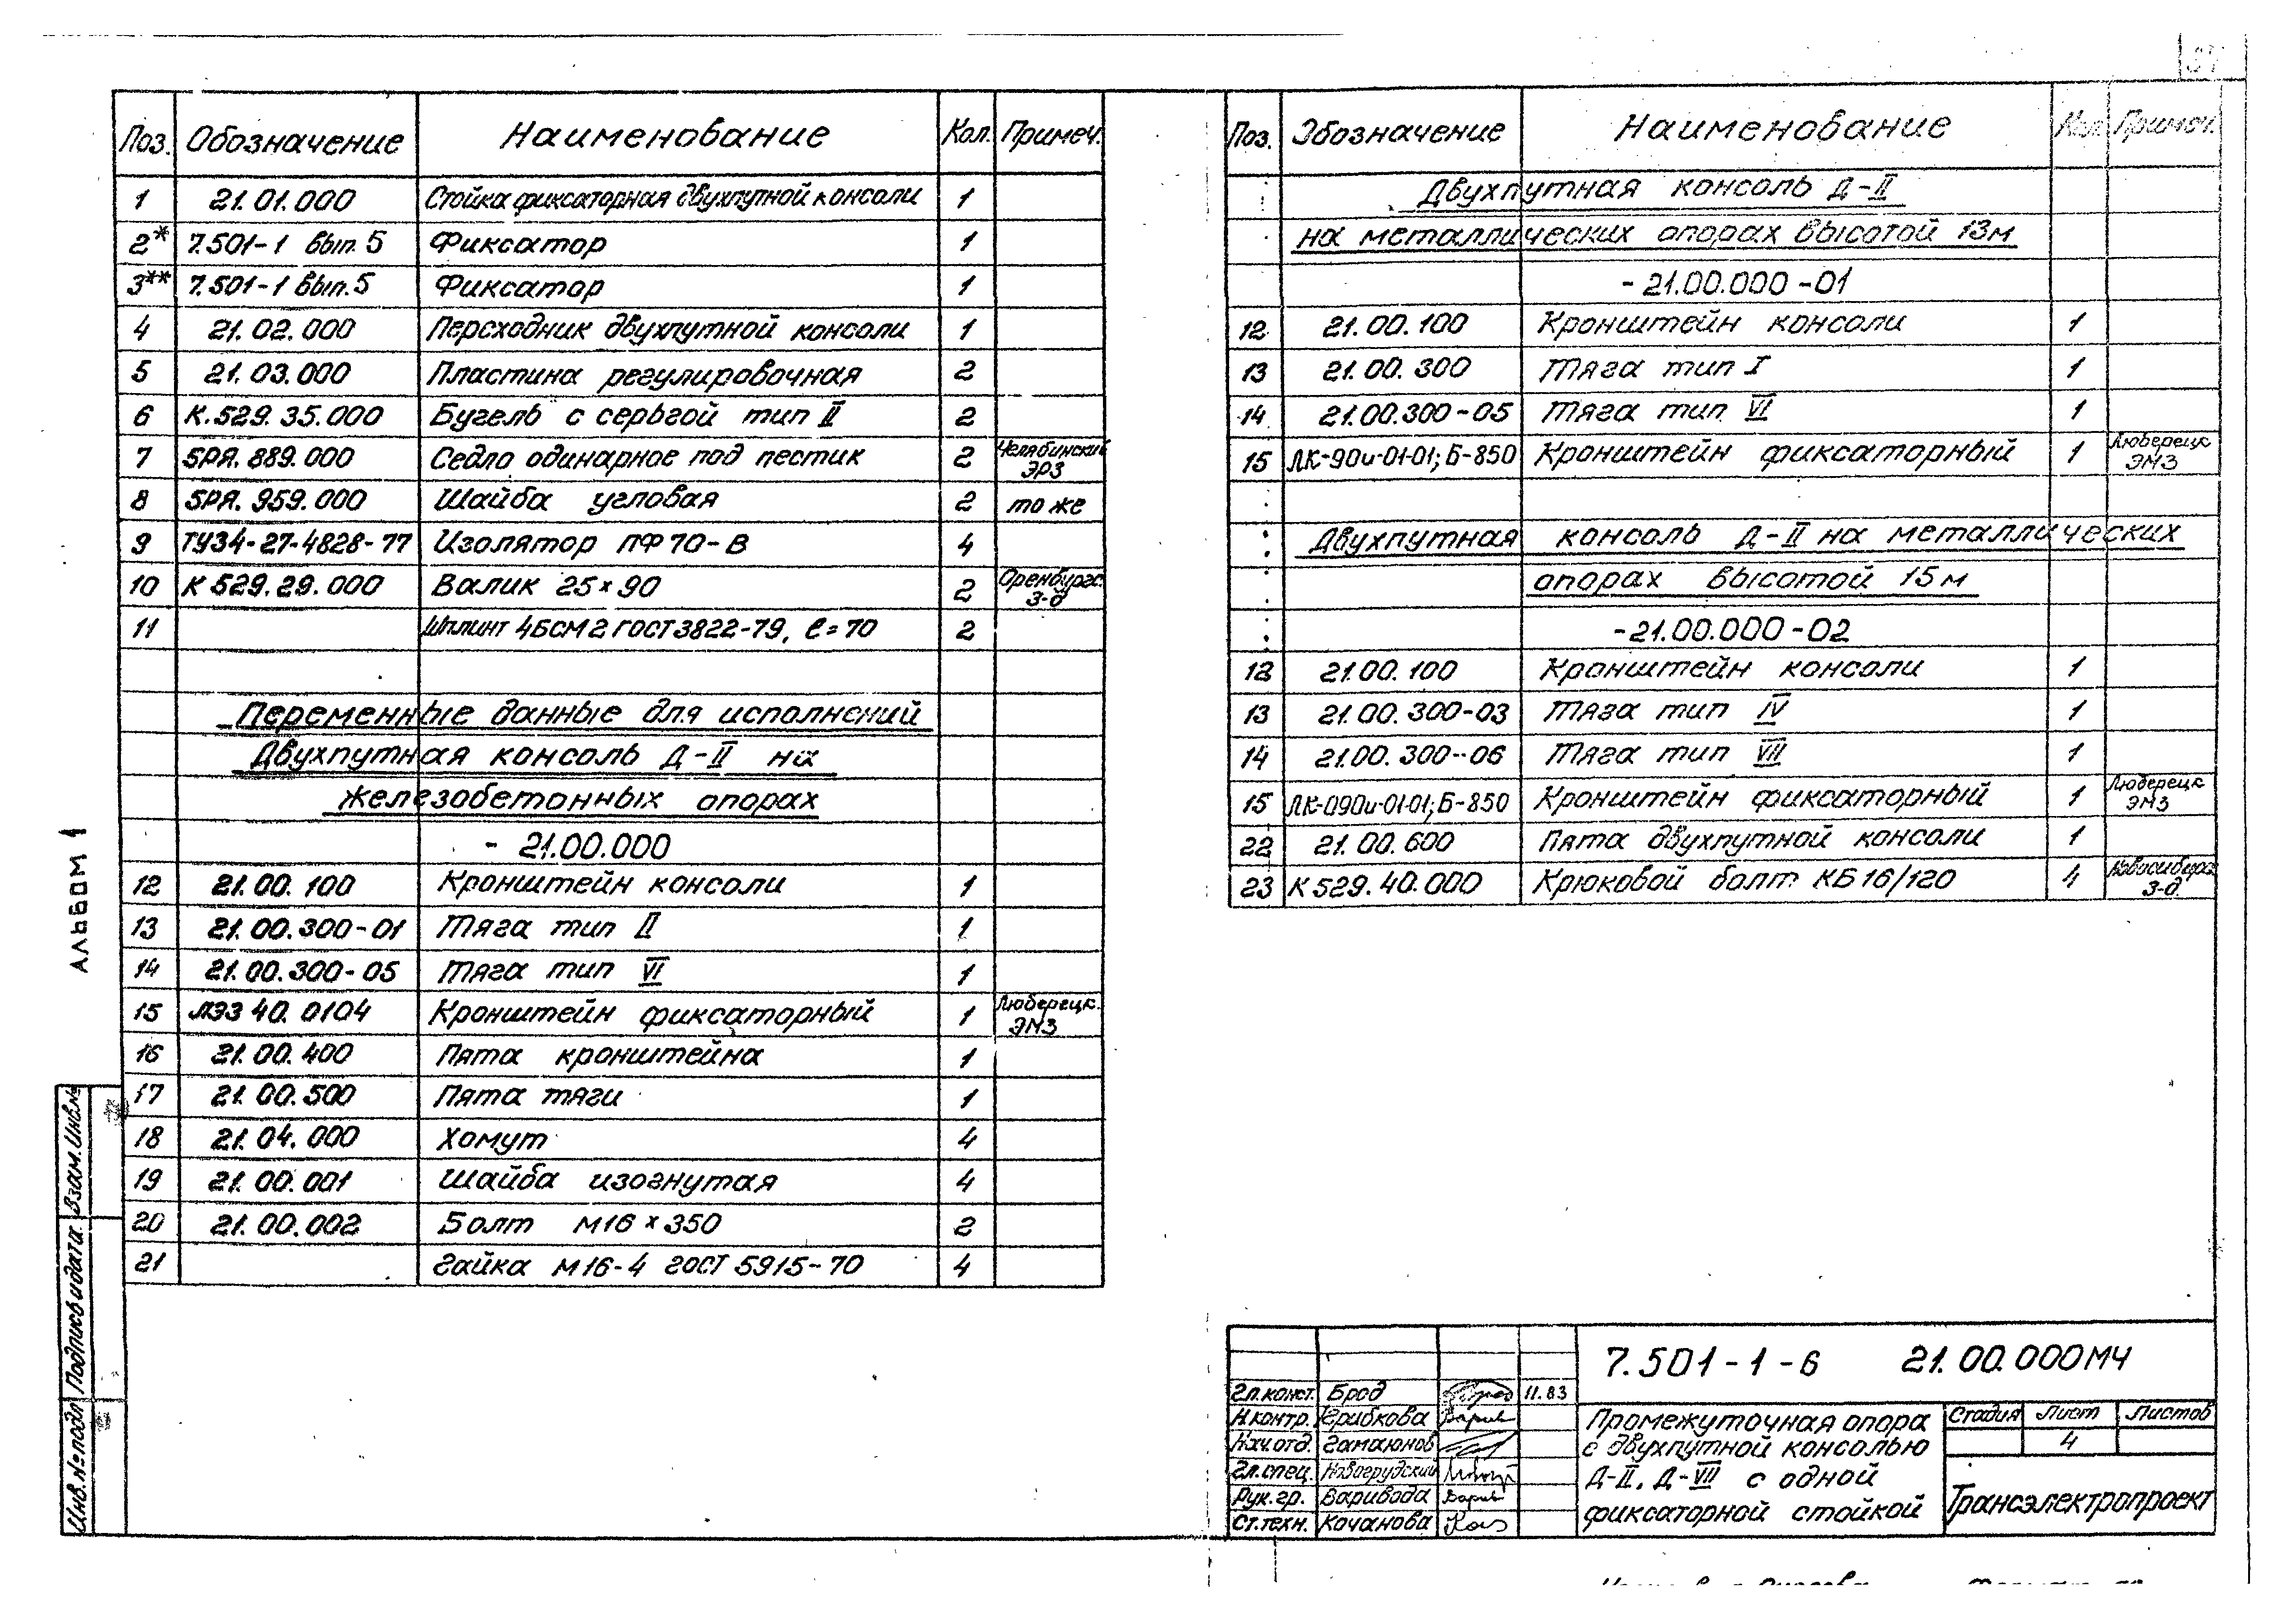 Поз. Обозначение Наименование Кол. Примеч.
1 21.01.000 Стойка фиксаторная двухпутной консоли 1
2* 7.501-1 вып. 5 Фиксатор 1
3** 7.501-1 вып. 5 Фиксатор 1
4 21.02.000 Переходник двухпутной консоли 1
5 21.03.000 Пластина регулировочная 2
6 К.529.35.000 Бугель с серьгой тип II 2
7 5РЯ.889.000 Седло одинарное под пестик 2 Челябинский ЭРЗ
8 5РЯ.959.000 Шайба угловая 2 то же
9 ТУ34-27-4828-77 Изолятор ПФ70-В 4
10 К 529.29.000 Валик 25×90 2 Оренбургс. з-д
11 Шплинт 4БСМ2 ГОСТ3822-79, ℓ=70 2
Переменные данные для исполнений
Двухпутная консоль Д-II на
железобетонных опорах
- 21.00.000
12 21.00.100 Кронштейн консоли 1
13 21.00.300-01 Тяга тип II 1
14 21.00.300-05 Тяга тип VI 1
15 ЛЭЗ 40.0104 Кронштейн фиксаторный 1 Люберецк. ЭМЗ
16 21.00.400 Пята кронштейна 1
17 21.00.500 Пята тяги 1
18 21.04.000 Хомут 4
19 21.00.001 Шайба изогнутая 4
20 21.00.002 Болт М16×350 2
21 Гайка М16-4 ГОСТ 5915-70 4
Поз. Обозначение Наименование Кол. Примеч.
Двухпутная консоль Д-II
на металлических опорах высотой 13м
- 21.00.000-01
12 21.00.100 Кронштейн консоли 1
13 21.00.300 Тяга тип I 1
14 21.00.300-05 Тяга тип VI 1
15 ЛК-90и-01-01; Б-850 Кронштейн фиксаторный 1 Люберецк ЭМЗ
Двухпутная консоль Д-II на металлических
опорах высотой 15м
-21.00.000-02
12 21.00.100 Кронштейн консоли 1
13 21.00.300-03 Тяга тип IV 1
14 21.00.300-06 Тяга тип VII 1
15 ЛК-090и-01-01; Б-850 Кронштейн фиксаторный 1 Люберецк ЭМЗ
22 21.00.600 Пята двухпутной консоли 1
23 К 529.40.000 Крюковой болт КБ16/120 4 з-д.
Альбом 1
Взам. Инв.№
Подпись и дата
Инв.№ подл
7.501-1-6 21.00.000МЧ
Гл.конст. Брод 11.83
Н.контр.
Нач.отд. Гамаюнов
Гл.спец. Новогрудский
Рук.гр. Варивода
Ст.техн. Кочанова
Промежуточная опора
с двухпутной консолью
Д-II, Д-VII с одной
фиксаторной стойкой
Стадия Лист Листов
4
Трансэлектропроект